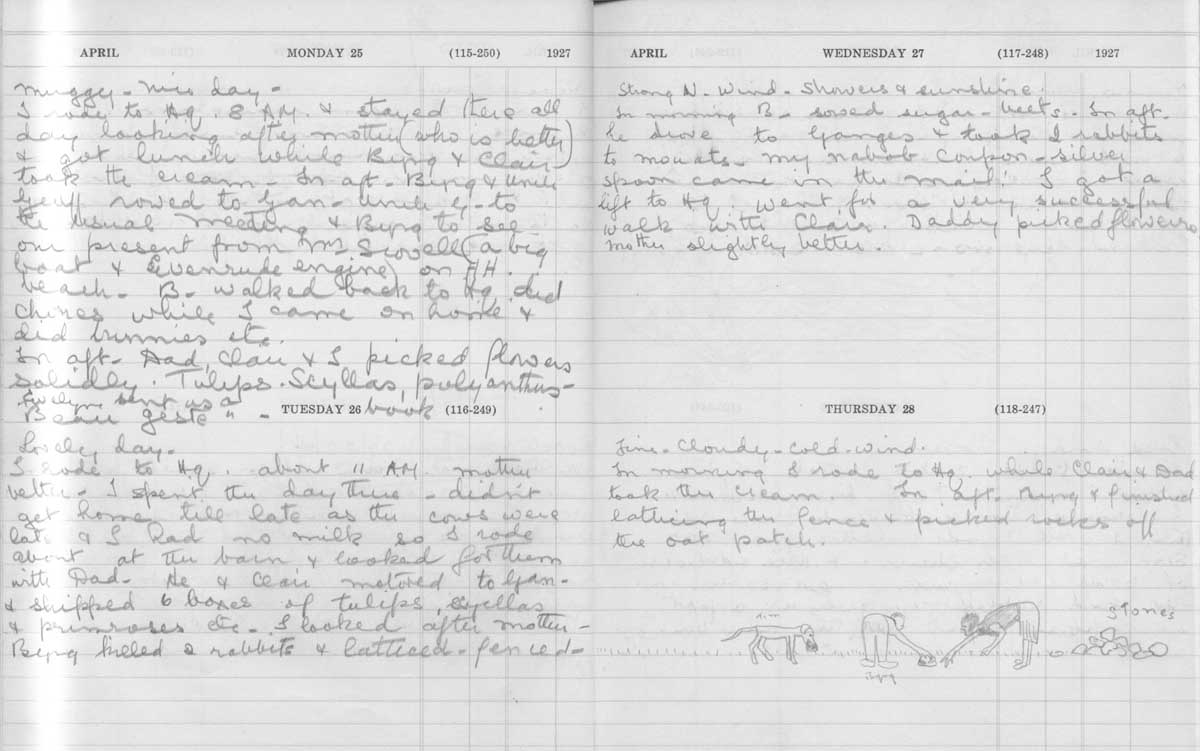 APRIL MONDAY 25 (115-250) 1927
muggy - nice day -
I rode to Hq. 8 A.M. & stayed there all
day looking after mother (who is better)
& got lunch while Byng & Clair
took the cream - In aft - Byng & Uncle
Geoff rowed to Gan - Uncle G - to
the usual meeting & Byng to see
our present from Mrs (a big
boat & Evenrude engine) on HH.
beach - B - walked back to Hq. did
chores while I came on home &
did bunnies etc.
In aft - Dad, Clair & I picked flowers
solidly. Tulips - Scyllas, polyanthus -
Evelyn sent us a
Beau Geste " - book
TUESDAY 26 (116-249)
Lovely day -
I rode to Hq. about 11 A.M. mother
better - I spent the day there - didn't
get home till late as the cows were
late & I had no milk so I rode
about at the barn & looked for them
with Dad - He & Clair motored to Gan -
& shipped 6 boxes of tulips, scyllas
& primroses etc - I looked after mother -
Byng killed 2 rabbits & latticed - fenced -
APRIL WEDNESDAY 27 (117-248) 1927
Strong N - Wind - Showers & sunshine.
In morning B - sowed sugar - beets. In aft -
he drove to Ganges & took 2 rabbits
to Mouats - my nabob coupon - silver
spoon came in the mail! I got a
lift to Hq. went for a very successful
walk with Clair. Daddy picked flowers
mother slightly better.
THURSDAY 28 (118-247)
Fine - Cloudy - cold - wind.
In morning I rode to Hq. while Clair & Dad
took the cream. In aft - Byng & I finished
latticing the fence & picked rocks off
the oat patch.
stones
Byng